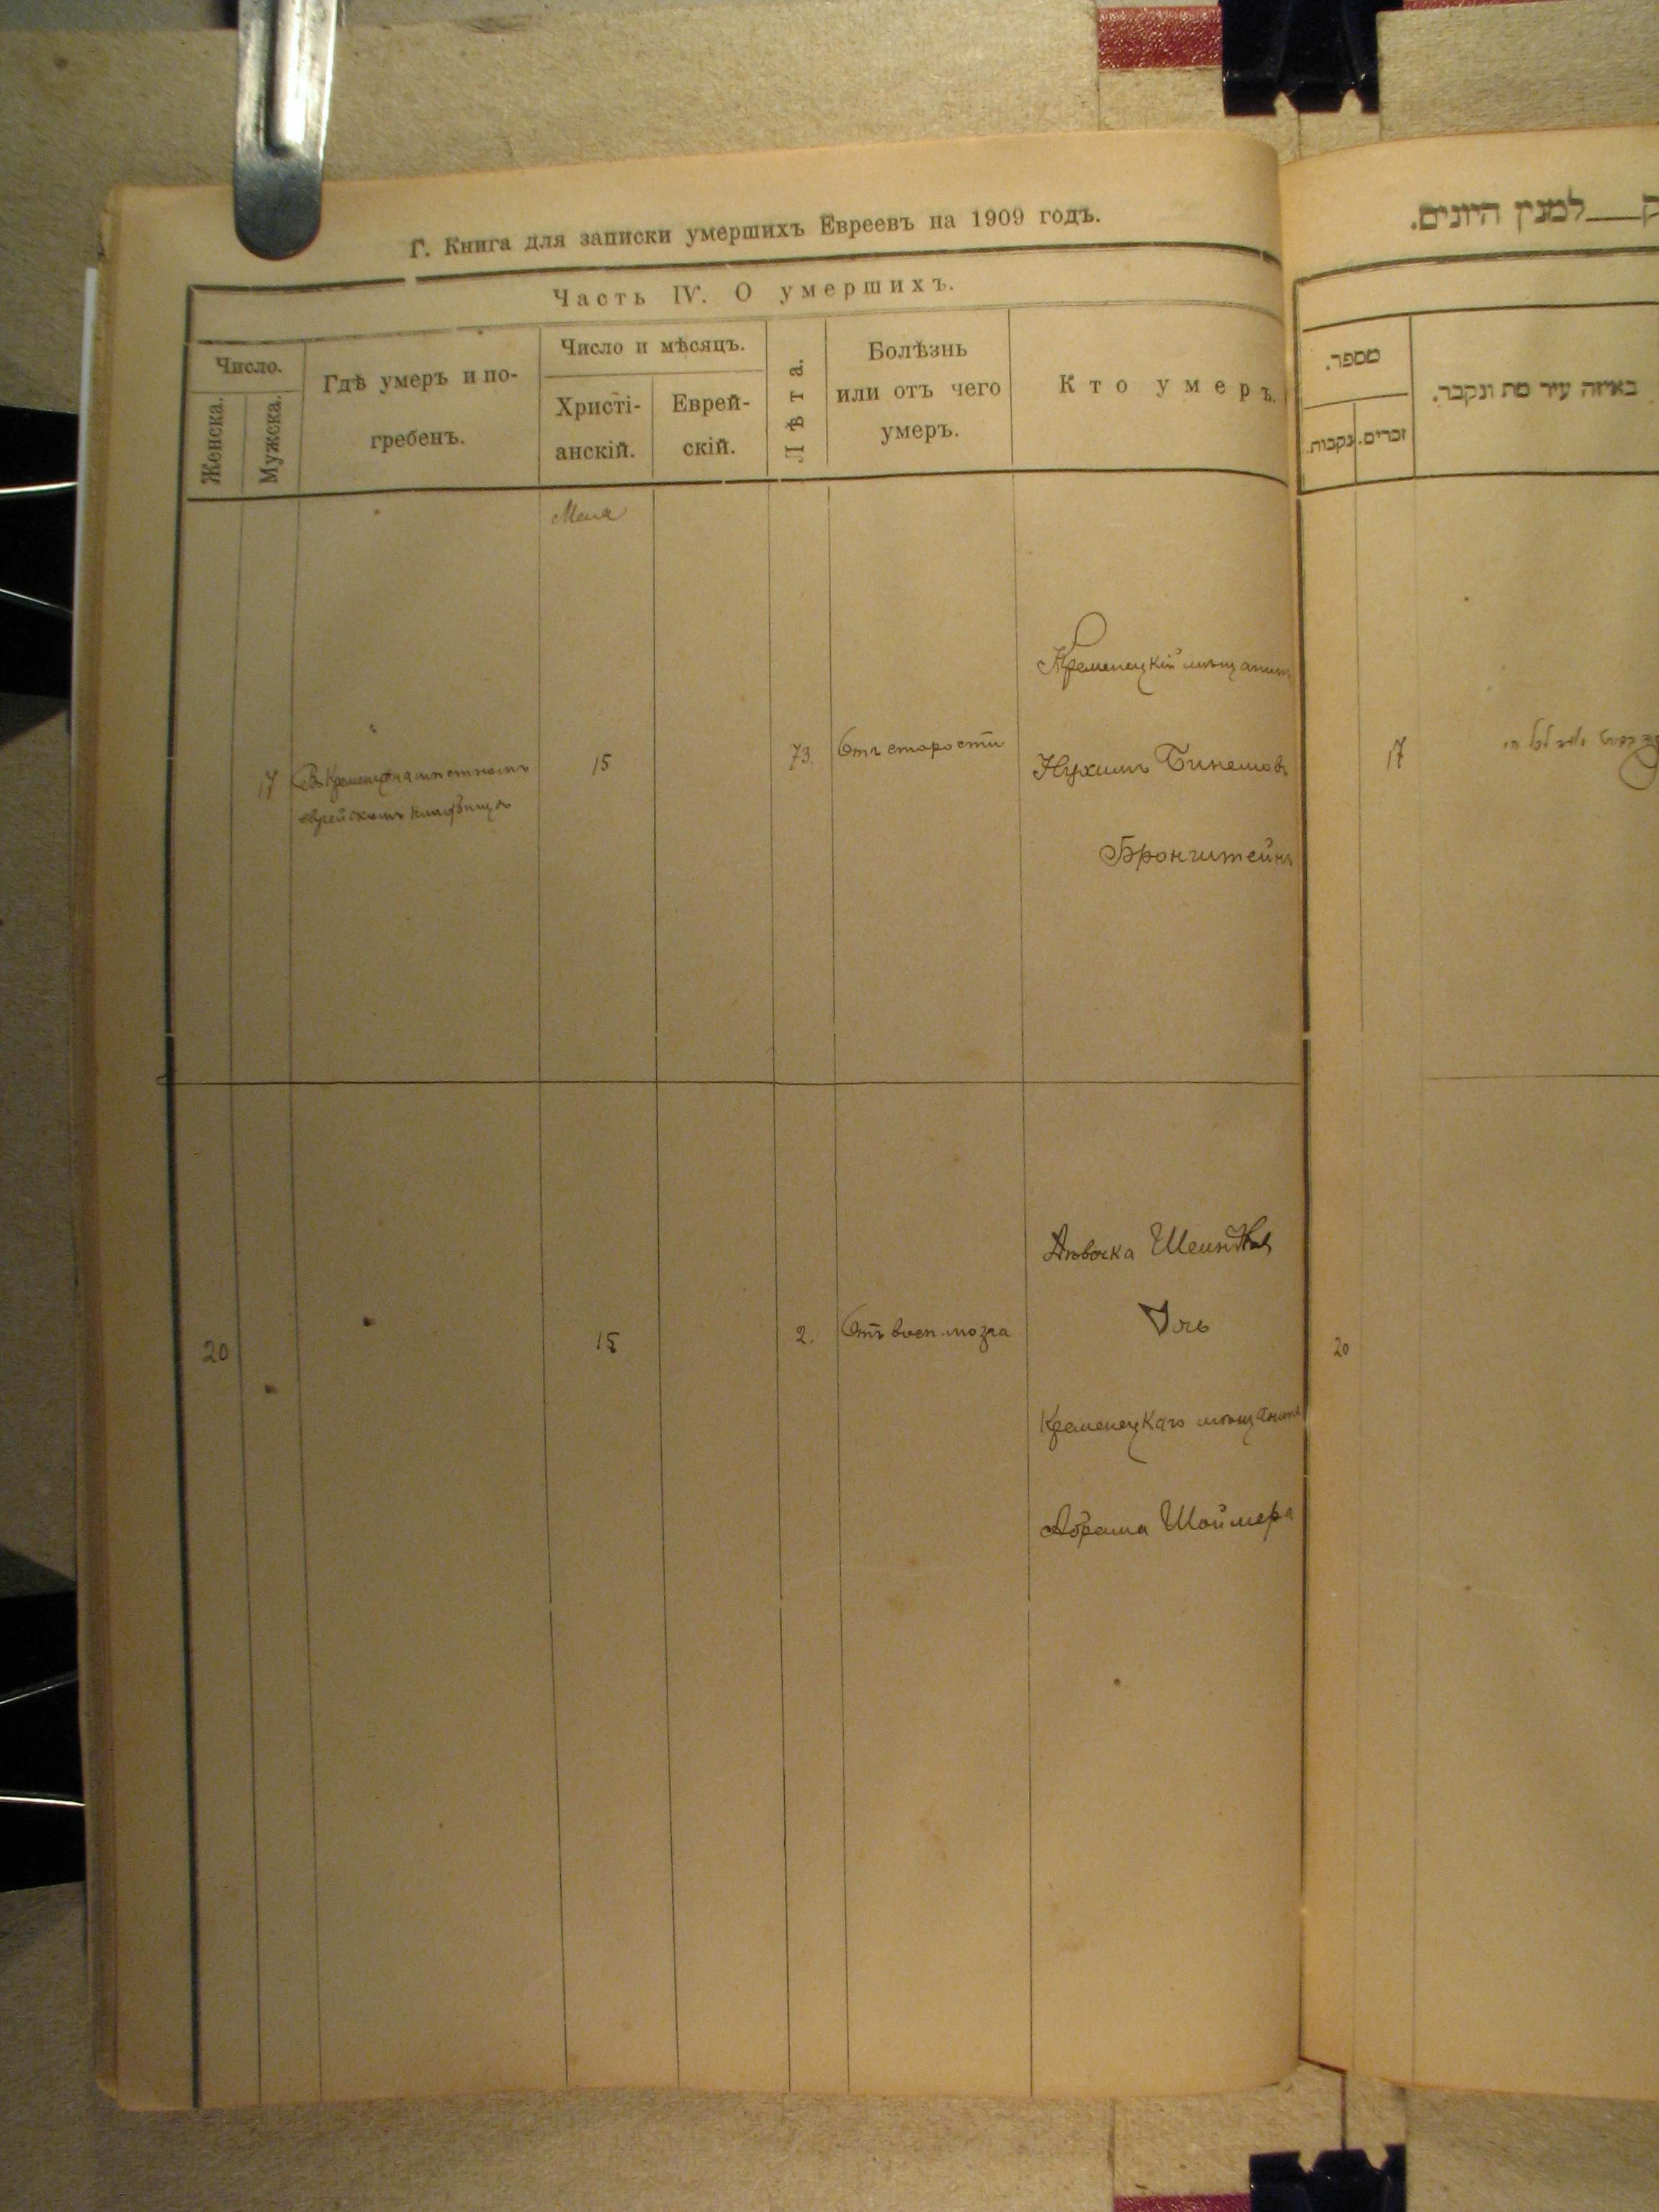 Г. Книга для записки умершихъ Евреевъ на 1909 годъ.
Часть IV. О умершихъ.
Число.
Женска.
Мужска.
Гдѣ умеръ и по-
гребенъ.
Число и мѣсяцъ.
Христі-
анскій.
Еврей-
скій.
Лѣта.
Болѣзнь
или отъ чего
умеръ.
Кто умеръ.
Мая
Кременецкій мѣщанинъ
17
Въ Кременцѣ на мѣстномъ
еврейскомъ кладбищѣ
15
73.
Отъ старости
Нухимъ
Бронштейнъ
Дѣвочка
Дочь
20
15
2.
Отъ восп. мозга
Кременецкаго мѣщанина
Абрама Шоймера
ק למנין היונים.
מספר.
נקבות.
זכרים.
באיזה עיר מת ונקבר.
17
20